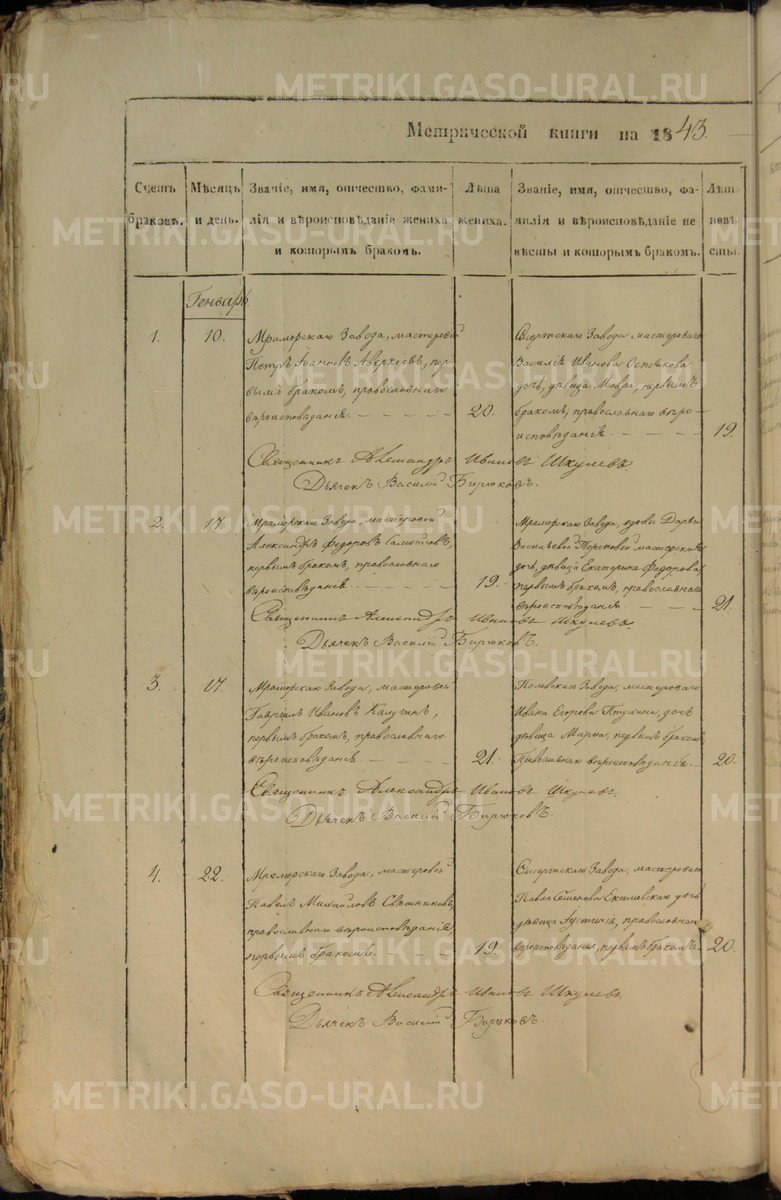 METRIKI.GASO-URAL.RU
Метрической книги на 1843.
Счетъ браковъ.
Мѣсяцъ и день.
Званіе, имя, отчество, фами-
лія и вѣроисповѣданіе жениха
и которымъ бракомъ.
Лѣта
жениха.
Званіе, имя, отчество, фа-
милія и вѣроисповѣданіе не
вѣсты и которымъ бракомъ.
Лѣт
невѣ
сты.
Генварь.
1.
10.
Мраморскаго Завода, мастеровой
Петръ Іоанновъ Аверкіевъ, пер-
вымъ бракомъ, православнаго
вѣроисповѣданія
20.
Сысертскаго Завода мастероваго
Василія Иванова
дочь, дѣвица Мавра, первымъ
бракомъ, православнаго вѣро-
исповѣданія
19.
Священникъ Александръ Ивановъ Шкулевъ
Дьячекъ Василій Бирюковъ.
2.
17.
Мраморскаго Завода, мастеровой
Александръ Федоровъ Самойловъ,
первымъ бракомъ, православнаго
вѣроисповѣданія
19.
Мраморскаго Завода, вдовы Дарьи
Васильевой мастерской
дочь, дѣвица Екатерина Федорова
первымъ бракомъ, православнаго
вѣроисповѣданія
21.
Священникъ Александръ Ивановъ Шкулевъ.
Дьячекъ Василій Бирюковъ.
3.
17.
Мраморскаго Завода, мастеровой
Гавріилъ Ивановъ Калугинъ,
первымъ бракомъ, православнаго
вѣроисповѣданія
21.
Полевскаго Завода, мастероваго
Ивана Егорова Птухина, дочь
дѣвица Марѳа, первымъ бракомъ,
православнаго вѣроисповѣданія.
20.
Священникъ Александръ Ивановъ Шкулевъ.
Дьячекъ Василій Бирюковъ.
4.
22.
Мраморскаго Завода, мастеровой
Павелъ Михайловъ Свѣшниковъ,
православнаго вѣроисповѣданія
первымъ бракомъ.
19.
Сысертскаго Завода, мастероваго
Павла Семенова дочь
дѣвица Іустинія, православнаго
вѣроисповѣданія, первымъ бракомъ.
20.
Священникъ Александръ Ивановъ Шкулевъ
Дьячекъ Василій Бирюковъ.